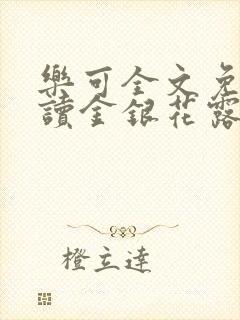 樂可全文免
讀金銀花露
橙立達